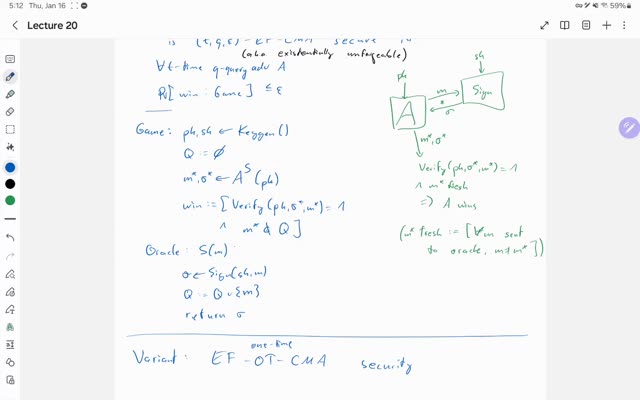 5:12 Thu, Jan 16
59%
Lecture 20
is (t,q,ε)-EF-CMA secure
(aka existentially unforgeable)
∀ t-time q-query adv A
Pr[win : Game] ≤ ε
Game: pk,sk ← Keygen()
Q := ∅
m*,σ* ← A^S(pk)
win := [Verify(pk,σ*,m*)=1
∧ m* ∉ Q]
Oracle: S(m)
σ ← Sign(sk,m)
Q := Q ∪ {m}
return σ
pk
sk
A
m
σ
Sign
m*,σ*
Verify(pk,σ*,m*)=1
∧ m* fresh
=> A wins
(m* fresh := [∀m sent
to oracle, m≠m*])
one-time
Variant: EF-OT-CMA security